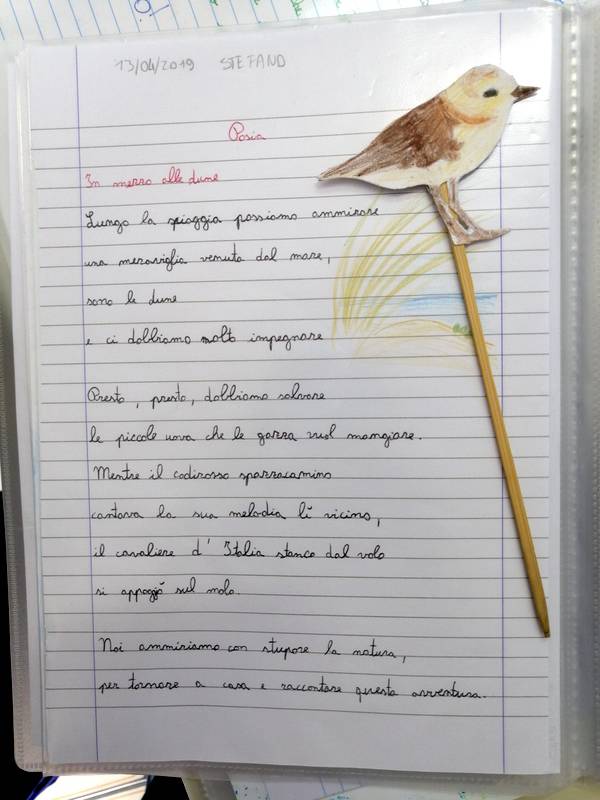 13/04/2019 STEFANO
Posia
In mezzo alle dune
Lungo la spiaggia possiamo ammirare
una meraviglia venuta dal mare,
sono le dune
e ci dobbiamo molto impegnare
Presto, presto, dobbiamo salvare
le piccole uova che le gazza vuol mangiare.
Mentre il codirosso sparracamino
cantava la sua melodia lì vicino,
il cavaliere d'Italia stanco dal volo
si appoggiò sul molo.
Noi ammiriamo con stupore la natura,
per tornare a casa e raccontare questa avventura.